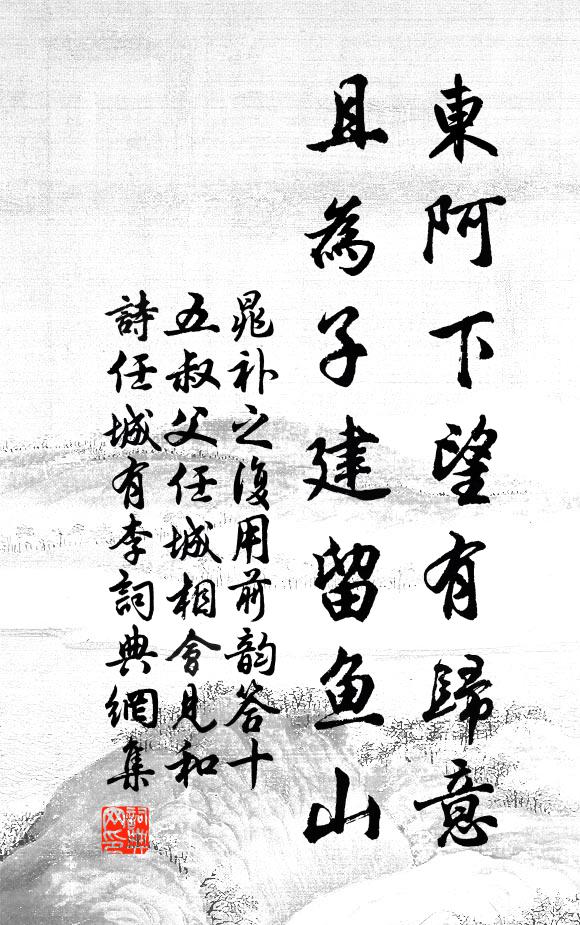 東阿下望有歸意
且為子建留魚山
晁补之復用前韵答十
五叔父任城相會見和
詩任城有李詞典網集
詞典网印